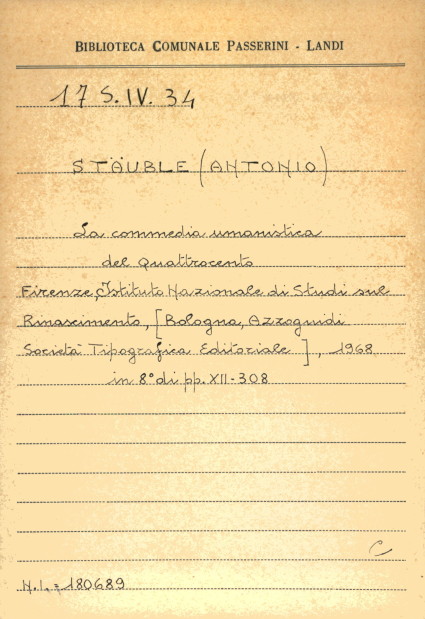 BIBLIOTECA COMUNALE PASSERINI - LANDI
17 S. IV. 34
STÄUBLE (ANTONIO)
La commedia umanistica
del Quattrocento
Firenze, Istituto Nazionale di Studi sul
Rinascimento, [Bologna, Azzoguidi
Società Tipografica Editoriale], 1968
in 8° di pp. XII-308
C
N.I. = 180689